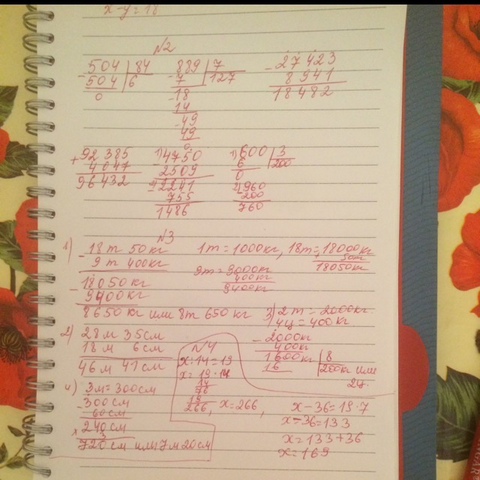 x-y=18
N2
-504 | 84
504 | 6
0
-889 | 7
7 | 127
-18
14
-49
49
0
-27423
8941
18482
+92385
4047
96432
1) 4750
2509
2) 2241
755
1486
1) 600 | 3
6 | 200
0
2) 960
-200
760
N3
1) -18т 50кг
9т 400кг
18050кг
9400кг
8650кг или 8т 650кг
1т=1000кг, 18т=18000кг
50кг
18050кг
9т=9000кг
400кг
9400кг
2) 28м 35см
18м 6см
46м 41см
3) 2т=2000кг
4ц=400кг
-2000кг
400кг
1600кг | 8
16 | 200кг или
2ц
4) 3м=300см
-300см
60см
240см
×3
720см или 7м 20см
N4
x:14=19
x=19·14
19
14
76
19
266, x=266,
x-36=19·7
x-36=133
x=133+36
x=169